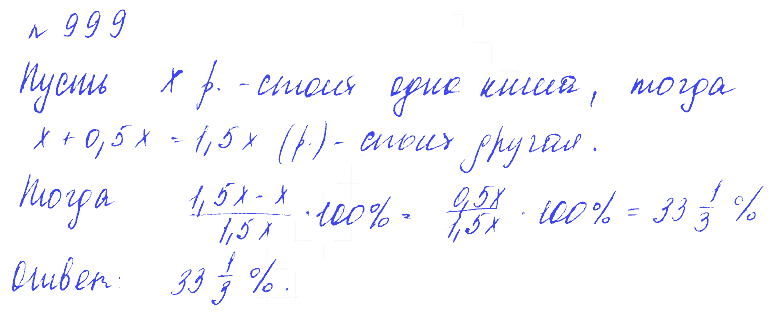 № 999
Пусть x р. - стоит одна книга, тогда
x + 0,5x = 1,5x (р.) - стоит другая.
Тогда (1,5x - x)/(1,5x) · 100% = 0,5x/(1,5x) · 100% = 33 1/3 %
Ответ: 33 1/3 %.